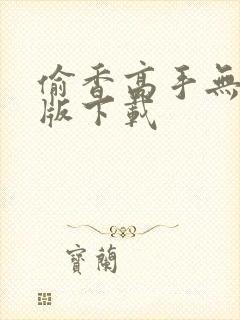 偷香高手無
版下載
寶蘭